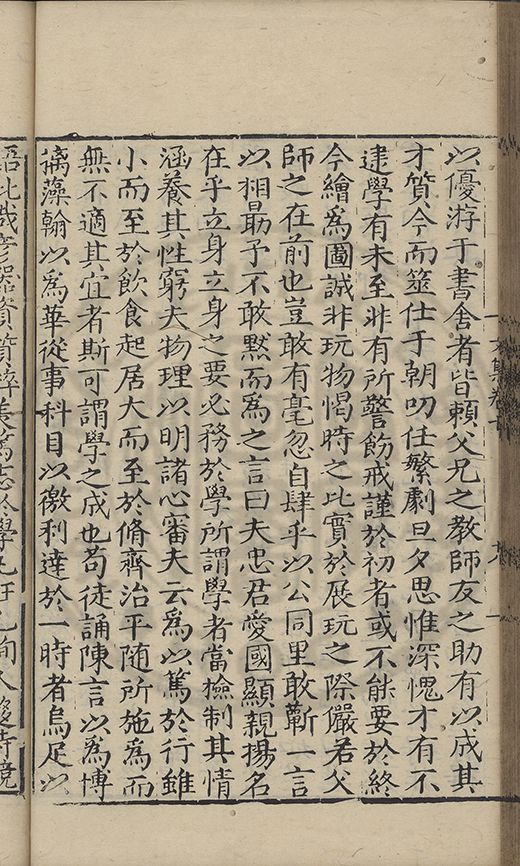 以優游于書舍者皆頼父兄之教師友之助有以成其
才質今而筮仕于朝叨任繁劇旦夕思惟深愧才有不
逮學有未至非有所警飭戒謹於初者或不能要於終
今繪爲圖誠非玩物愒時之比實於展玩之際儼若父
師之在前也豈敢有毫忽自肆乎以公同里敢蘄一言
以相勗予不敢默而爲之言曰夫忠君愛國顯親揚名
在乎立身立身之要必務於學所謂學者當檢制其情
涵養其性窮夫物理以明諸心審夫云爲以篤於行雖
小而至於飲食起居大而至於脩齊治平随所施爲而
無不適其宜者斯可謂學之成也苟徒誦陳言以爲博
摛藻翰以爲華從事科目以徼利達於一時者烏足以